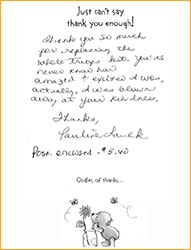 Just can't say
thank you enough!
Thank you so much
for replacing the
whole Trugs kit, you're
never know how
amazed & excited I was,
actually, I was blown
away at your kindness.
Thanks,
Pauline
Post. enclosed - $5.40
Oodles of thanks...